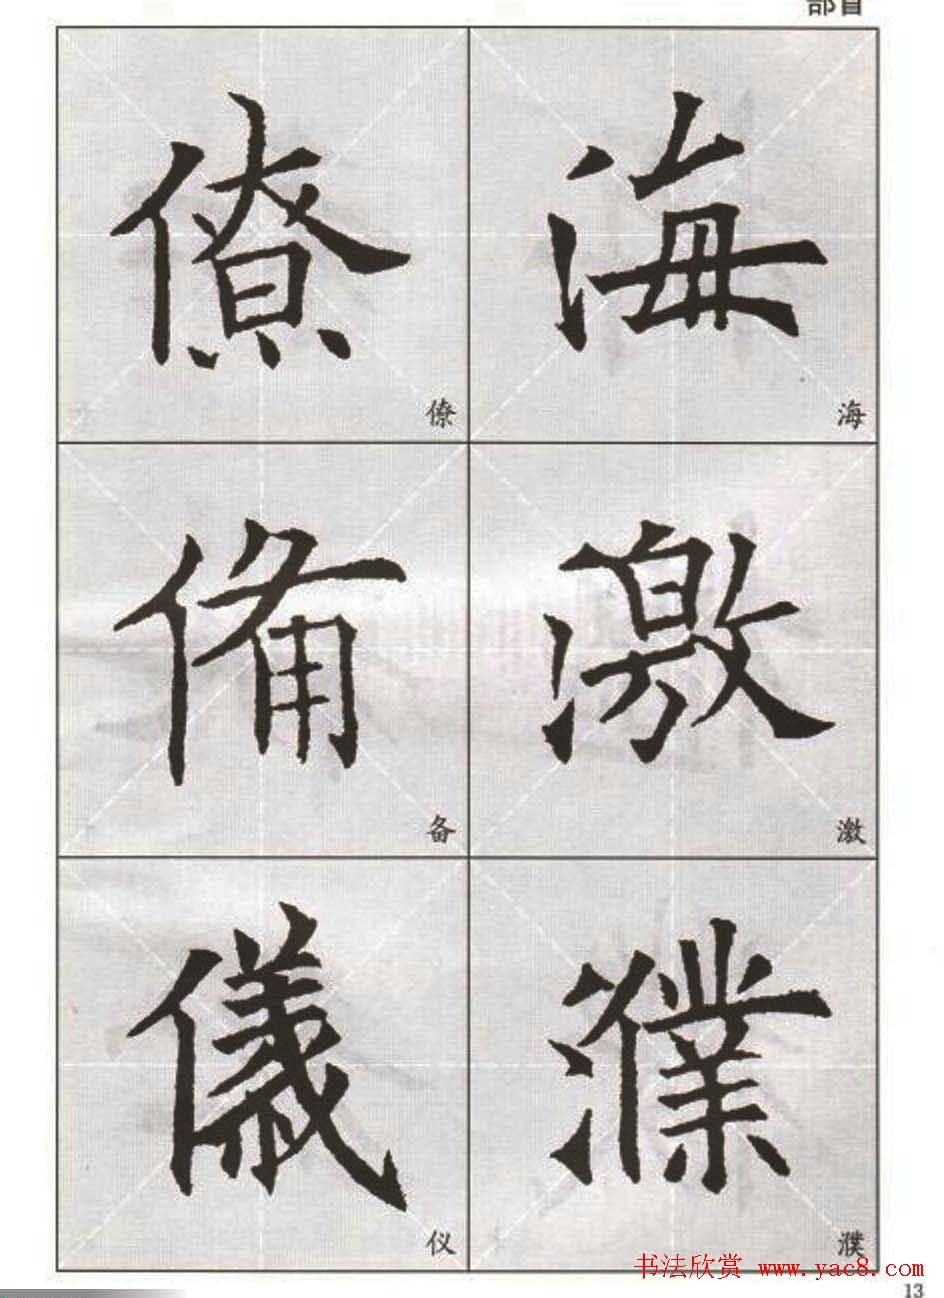 部首
僚 海
僚 海
備 激
备 激
儀 濮
仪 濮
书法欣赏 www.yac8.com
13